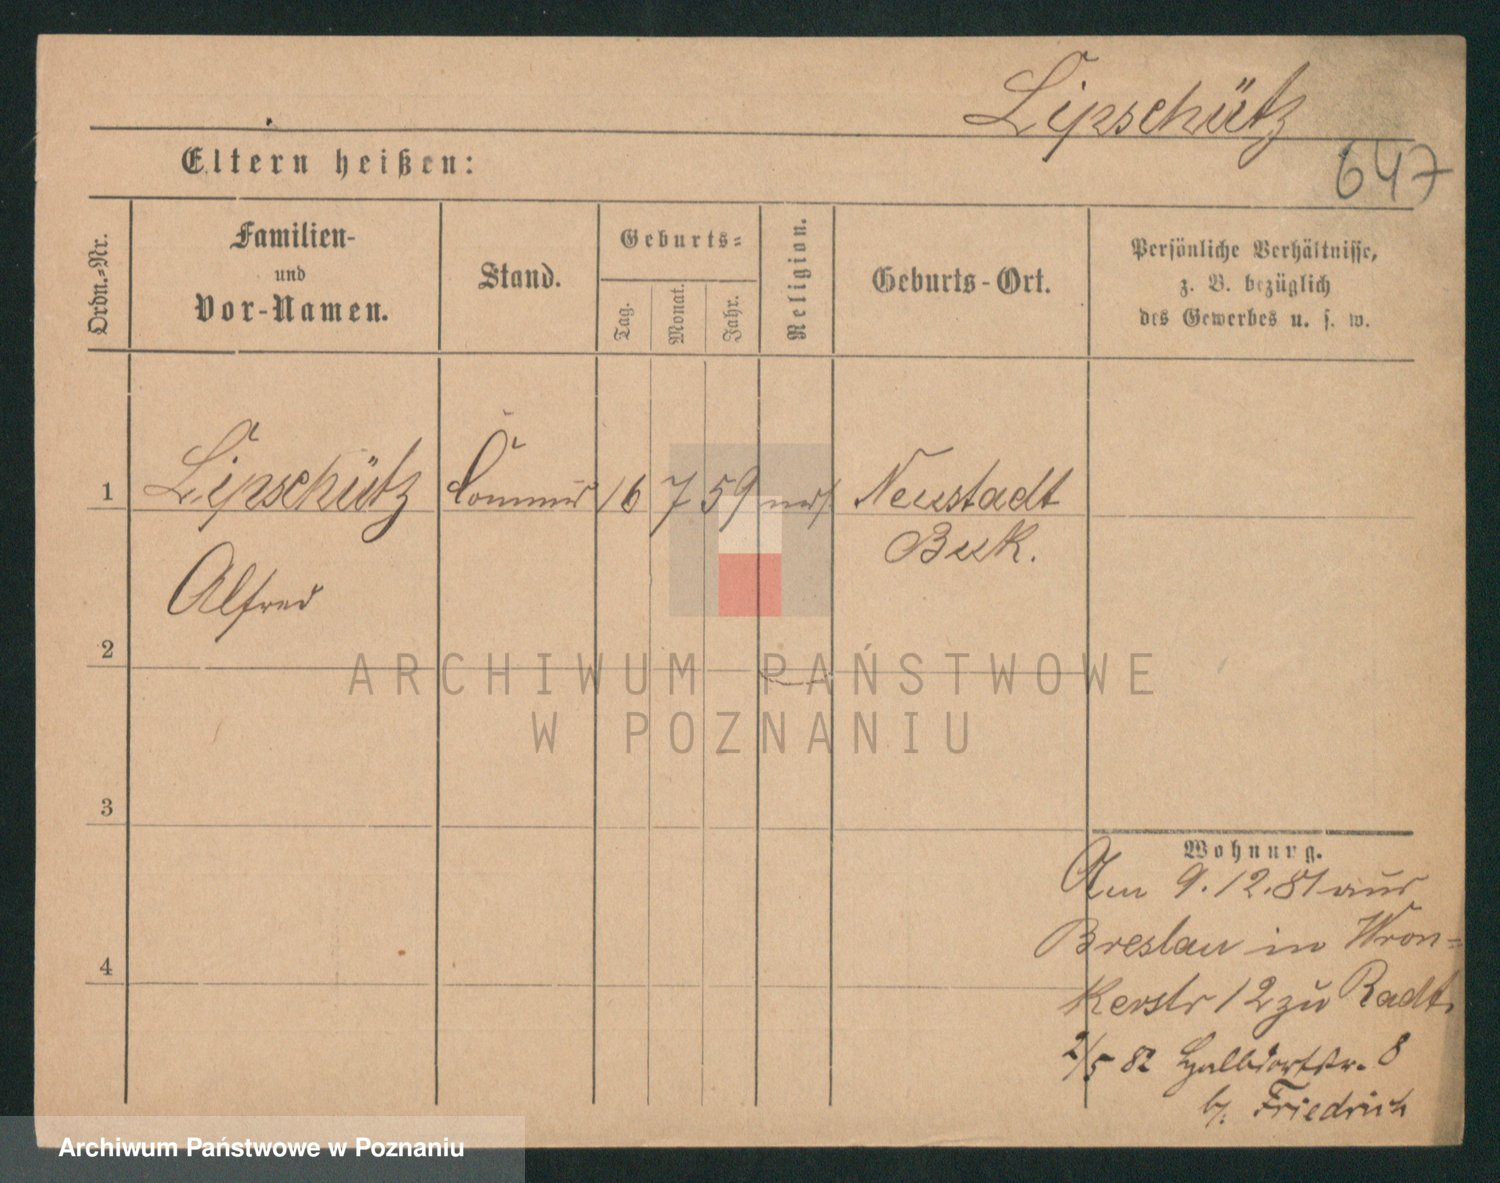 Lipschütz
647
Eltern heißen:
Ordn.-Nr.
Familien-
und
Vor-Namen.
Stand.
Geburts-
Tag.
Monat.
Jahr.
Religion.
Geburts-Ort.
Persönliche Verhältnisse,
z. B. bezüglich
des Gewerbes u. s. w.
1 Lipschütz Commis 16 7 59 mos. Neustadt
Buk.
Alfred
2
ARCHIWUM PAŃSTWOWE
W POZNANIU
3
Wohnung.
Am 9.12.81 aus
Breslau in Wron-
4
kerstr 12 zu Radt.
2/5 82 Halbdorfstr. 8
b/. Friedrich
Archiwum Państwowe w Poznaniu